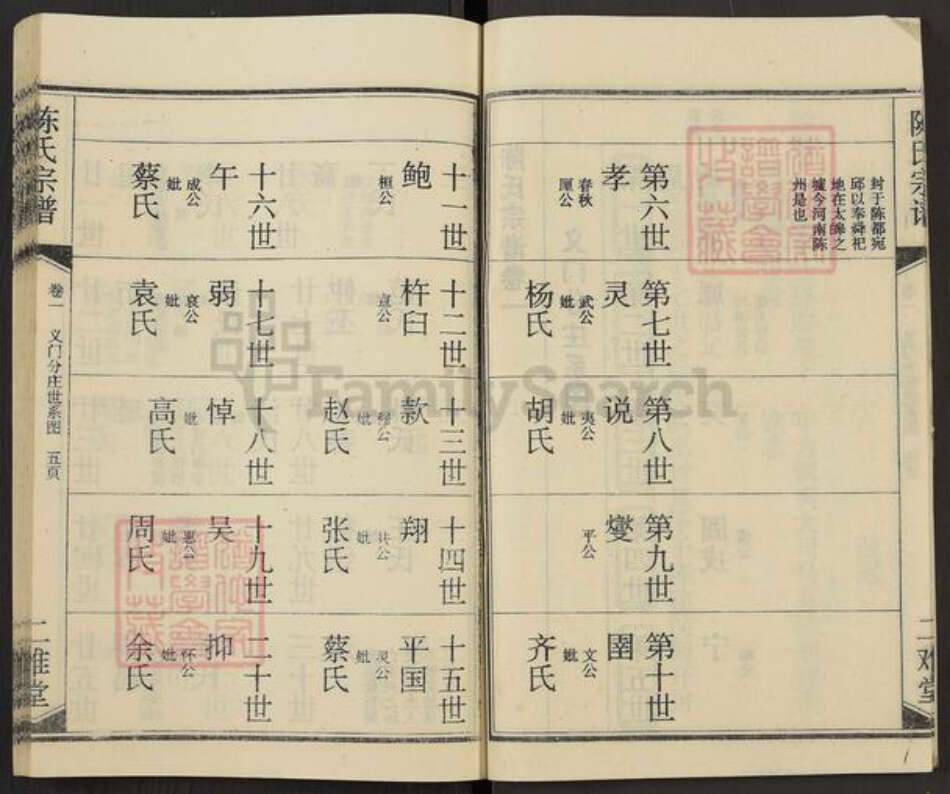 陈氏宗谱
二难堂
封于陈都宛
邱以奉舜祀
地在太皞之
墟今河南陈
州是也
第六世
孝
春秋
厘公
第七世
灵
武公
妣
杨氏
第八世
说
夷公
妣
胡氏
第九世
燮
平公
第十世
圉
文公
妣
齐氏
十一世
鲍
桓公
十二世
杵臼
宣公
十三世
款
穆公
妣
赵氏
十四世
翔
共公
妣
张氏
十五世
平国
灵公
妣
蔡氏
十六世
午
成公
妣
蔡氏
十七世
弱
哀公
妣
袁氏
十八世
悼
妣
高氏
十九世
吴
惠公
妣
周氏
二十世
抑
怀公
妣
余氏
陈氏宗谱
卷一
义门分庄世系图
五页
二难堂
FamilySearch